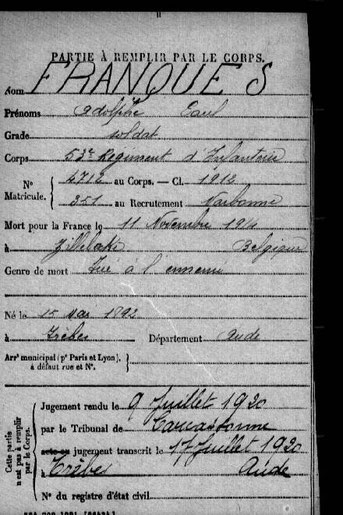 PARTIE À REMPLIR PAR LE CORPS.
Nom FRANQUES
Prénoms Adolphe Paul
Grade soldat
Corps 53e Régiment d'Infanterie
N° Matricule. 4712 au Corps. — Cl. 1912
351 au Recrutement Narbonne
Mort pour la France le 11 Novembre 1914
à Belgique
Genre de mort Tué à l'ennemi
Né le 15 Mai 1892
à Trèbes Département Aude
Arrt municipal (pr Paris et Lyon), à défaut rue et N°.
Cette partie n'est pas à remplir par le Corps.
Jugement rendu le 9 Juillet 1920
par le Tribunal de Carcassonne
acte ou jugement transcrit le 17 Juillet 1920
à Trèbes Aude
N° du registre d'état civil